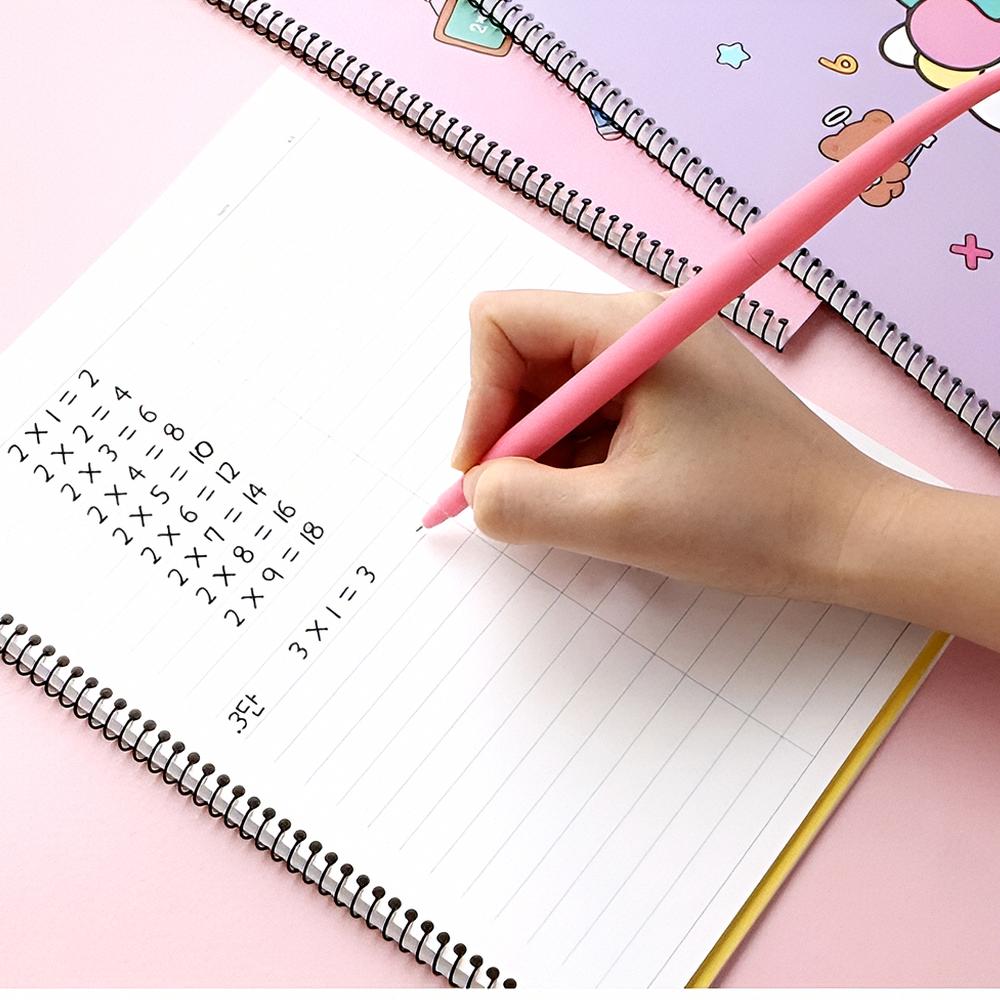 2 × 1 = 2
2 × 2 = 4
2 × 3 = 6
2 × 4 = 8
2 × 5 = 10
2 × 6 = 12
2 × 7 = 14
2 × 8 = 16
2 × 9 = 18
.3단
3 × 1 = 3